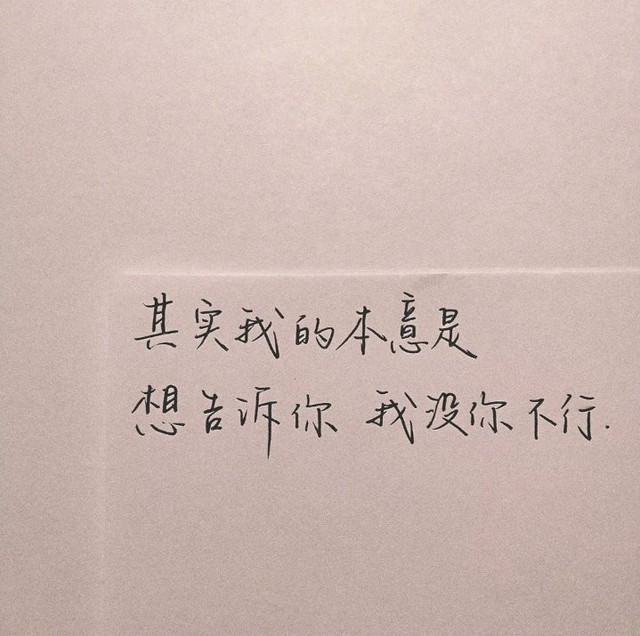 其实我的本意是
想告诉你 我没你不行.